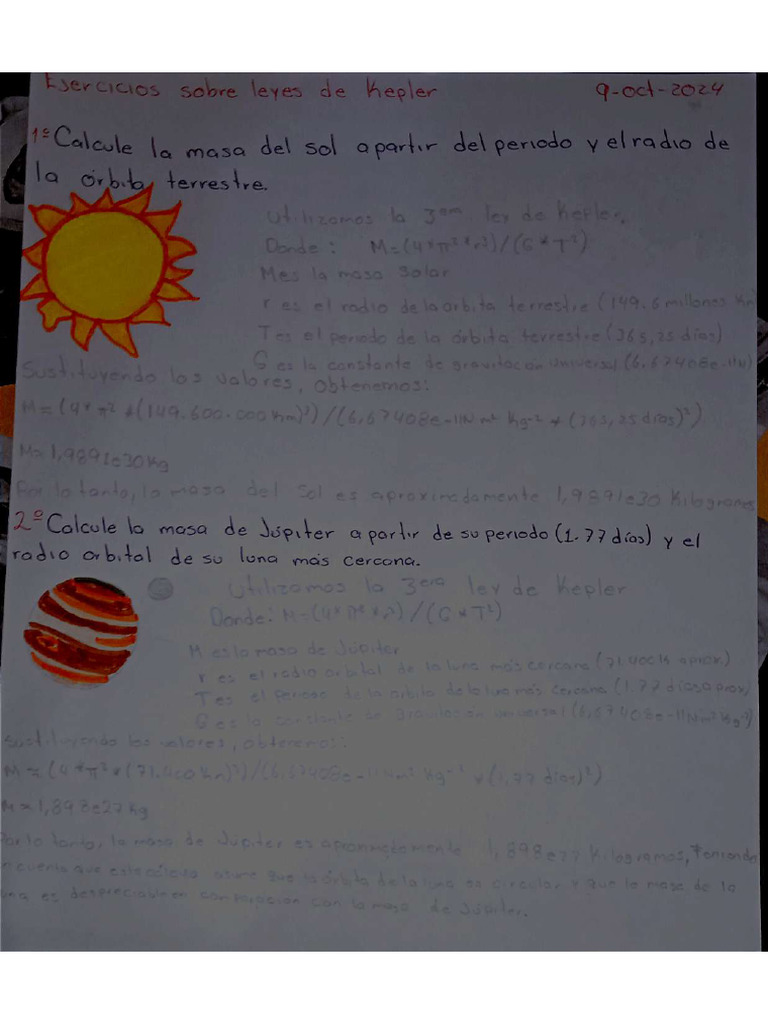 Ejercicios sobre leyes de Kepler 9-oct-2024
1º Calcule la masa del sol a partir del periodo y el radio de
la órbita terrestre.
Utilizamos la 3era ley de Kepler.
Donde: M=(4*π²*r³)/(G*T²)
M es la masa solar
r es el radio de la órbita terrestre (149.6 millones Km)
T es el periodo de la órbita terrestre (365,25 días)
G es la constante de gravitación universal (6.67408e-11N)
Sustituyendo los valores, obtenemos:
M=(4*π²*(149.600.000Km)³)/(6,67408e-11Nm² Kg-2*(365,25 días)²)
M=1,9891e30Kg
Por lo tanto, la masa del Sol es aproximadamente 1,9891e30 Kilogramos
2º Calcule la masa de Júpiter a partir de su periodo (1.77 días) y el
radio orbital de su luna más cercana.
Utilizamos la 3era ley de Kepler
Donde: M=(4*π²*r³)/(G*T²)
M es la masa de Júpiter
r es el radio orbital de la luna más cercana (71.400 aprox)
T es el periodo de la órbita de la luna más cercana (1.77 días aprox)
G es la constante de gravitación universal (6,67408e-11Nm²Kg²)
Sustituyendo los valores, obtenemos:
M=(4*π²*(71.400Km)³)/(6,67408e-11Nm² Kg-2*(1,77 días)²)
M=1,898e27Kg
Por lo tanto, la masa de Júpiter es aproximadamente 1,898e27 Kilogramos, Teniendo
en cuenta que este cálculo asume que la órbita de la luna es circular y que la masa de la
luna es despreciable en comparación con la masa de Júpiter.